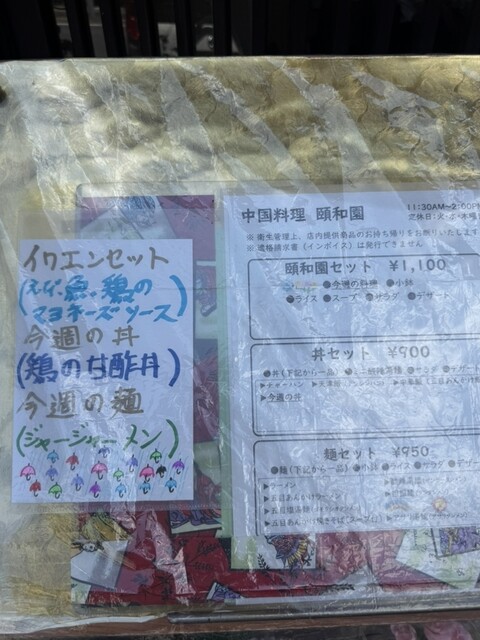 イワエンセット
魚、鶏の
マヨネーズソース)
今週の丼
(鶏の甘酢丼)
今週の麺
(ジャージャーメン)
中国料理 頤和園
11:30AM~2:00PM
定休日:火・水・木曜
※ 衛生管理上、店内提供商品のお持ち帰りをお断りいたします
※ 適格請求書(インボイス)は発行できません
頤和園セット ¥1,100
●今週の料理 ●小鉢
●ライス ●スープ ●サラダ ●デザート
丼セット ¥900
●丼(下記から一品) ●サラダ ●デザー
▶チャーハン ▶天津飯
▶今週の丼
麺セット ¥950
●麺(下記から一品) ●小鉢 ●ライス ●サラダ ●デザー
▶ラーメン
▶五目あんかけラーメン
▶五目塩湯麺
▶五目あんかけ焼きそば(スープ付)